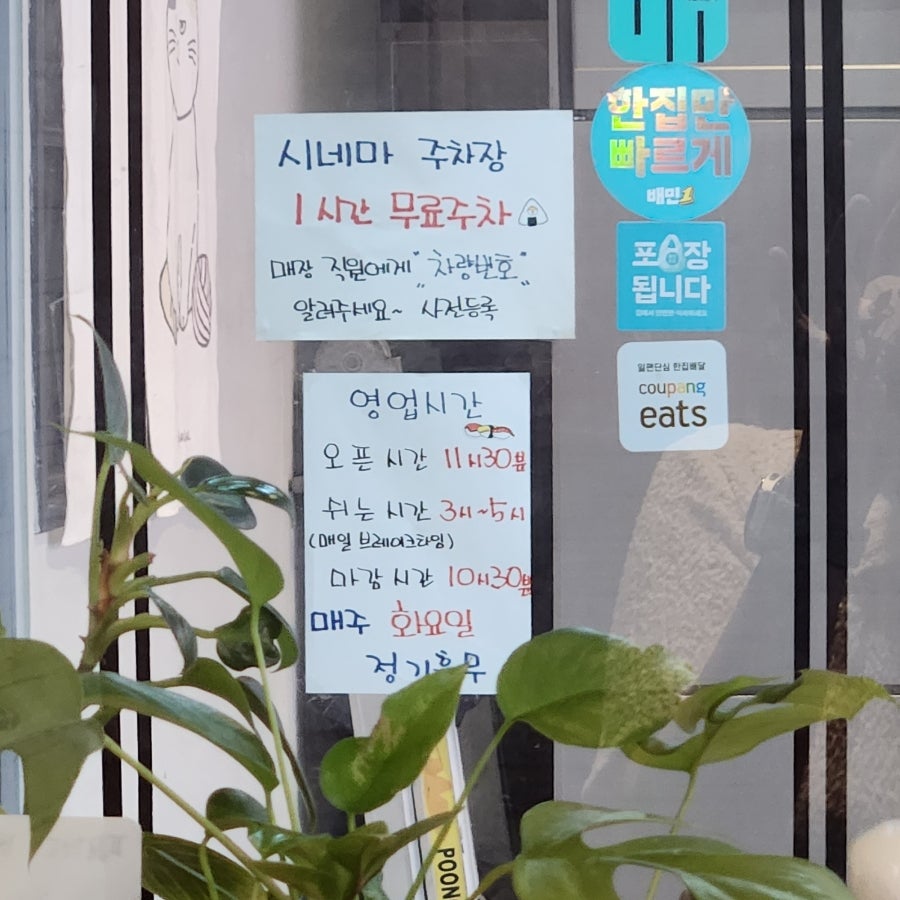 시네마 주차장
1시간 무료주차
매장 직원에게 "차량번호"
알려주세요~ 사전등록
영업시간
오픈 시간 11시30분
쉬는 시간 3시~5시
(매일 브레이크타임)
마감 시간 10시30분
매주 화요일
정기휴무
한집만
빠르게
배민1
포장
됩니다
일편단심 한집배달
coupang
eats
POON